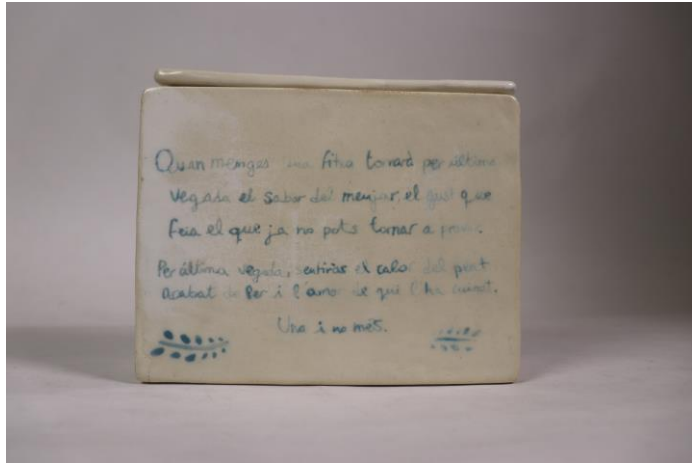 Quan menges una fitxa tornarà per última
vegada el sabor del menjar, el gust que
feia el que ja no pots tornar a provar.
Per última vegada, sentiràs el calor del pa
acabat de fer i l'amor de qui l'ha cuinat.
Una i no més.